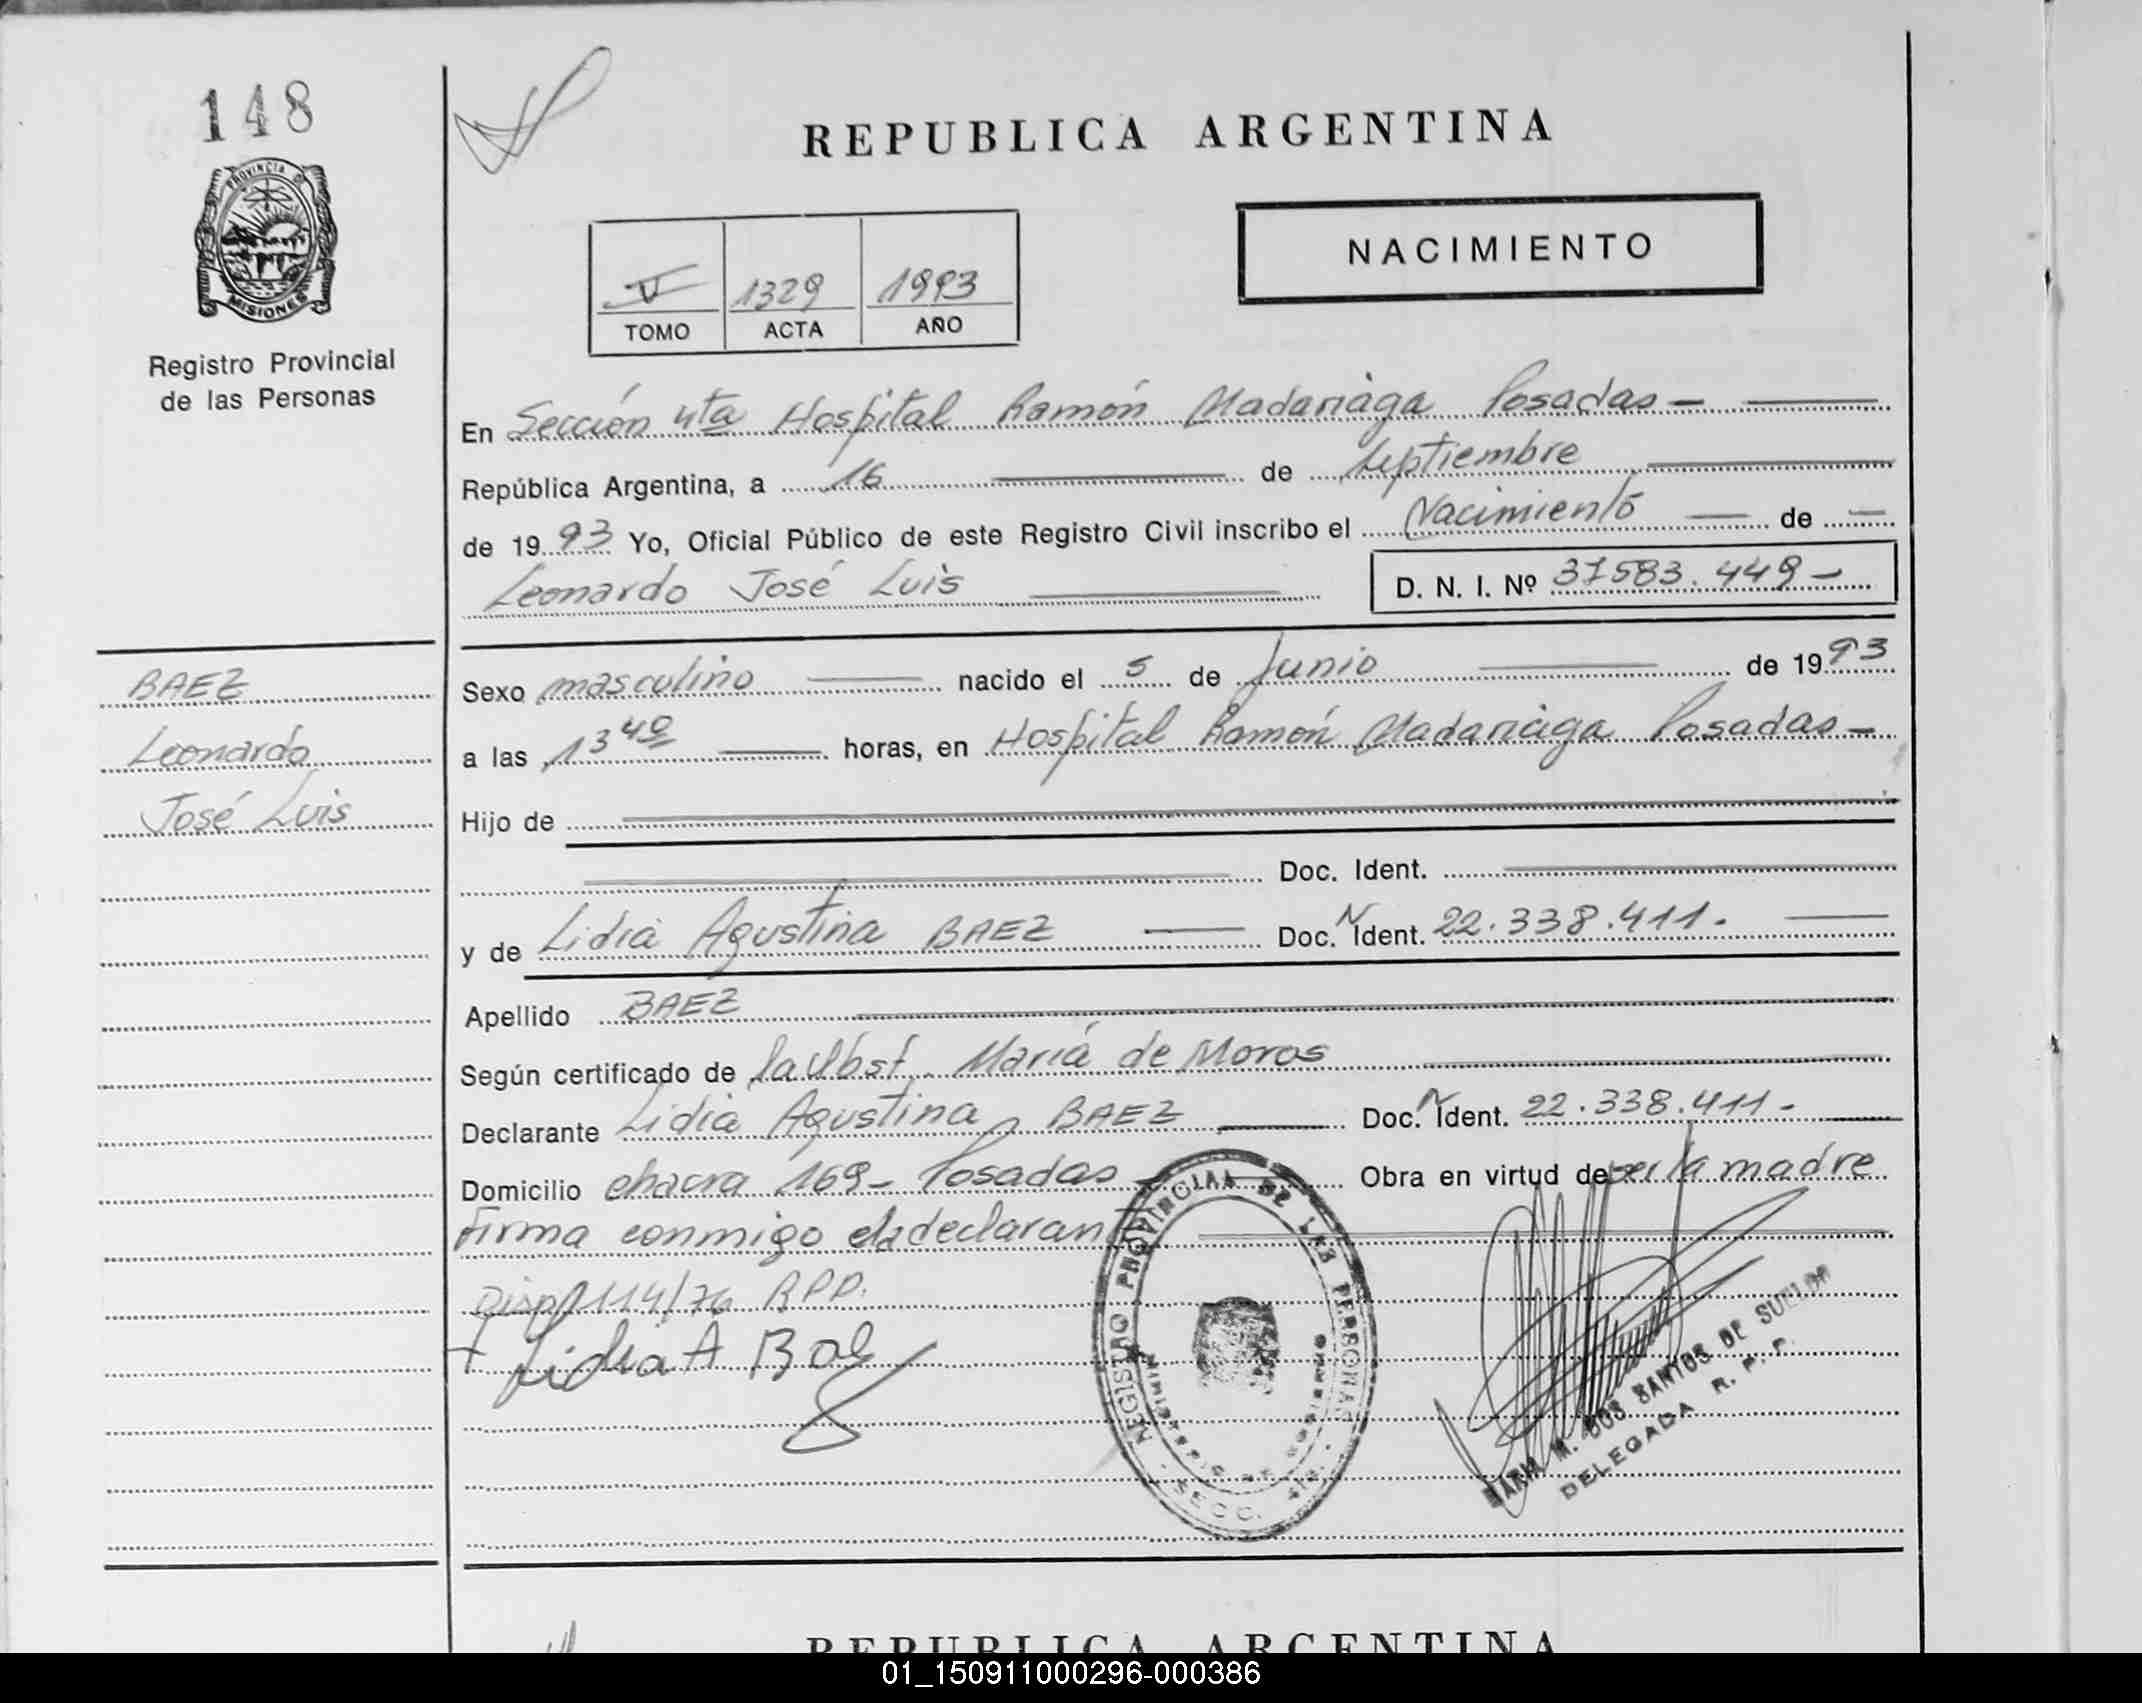 148
REPUBLICA ARGENTINA
PROVINCIA DE
MISIONES
NACIMIENTO
V 1329 1993
TOMO ACTA AÑO
Registro Provincial
de las Personas
En Sección 4ta Hospital Ramón Madariaga Posadas -
República Argentina, a 16 de septiembre
de 1993 Yo, Oficial Público de este Registro Civil inscribo el Nacimiento de
Leonardo José Luis D. N. I. Nº 37583.449-
BAEZ
Leonardo
José Luis
Sexo masculino nacido el 5 de Junio de 1993
a las 13 40 horas, en Hospital Ramón Madariaga Posadas -
Hijo de
Doc. Ident.
y de Lidia Agustina BAEZ Doc. N Ident. 22.338.411.
Apellido BAEZ
Según certificado de la Obst. María de Moros
Declarante Lidia Agustina BAEZ Doc. N Ident. 22.338.411-
Domicilio chacra 169- Posadas Obra en virtud de ser la madre
Firma conmigo el declaran
Disp 114/76 RPP.
Lidia A Bae
REGISTRO PROVINCIAL DE LAS PERSONAS
MINISTERIO DE GOBIERNO
SECC. 4ta.
MARIA M. DOS SANTOS DE SUELDO
DELEGADA R. P. P.
REPUBLICA ARGENTINA
01_150911000296-000386